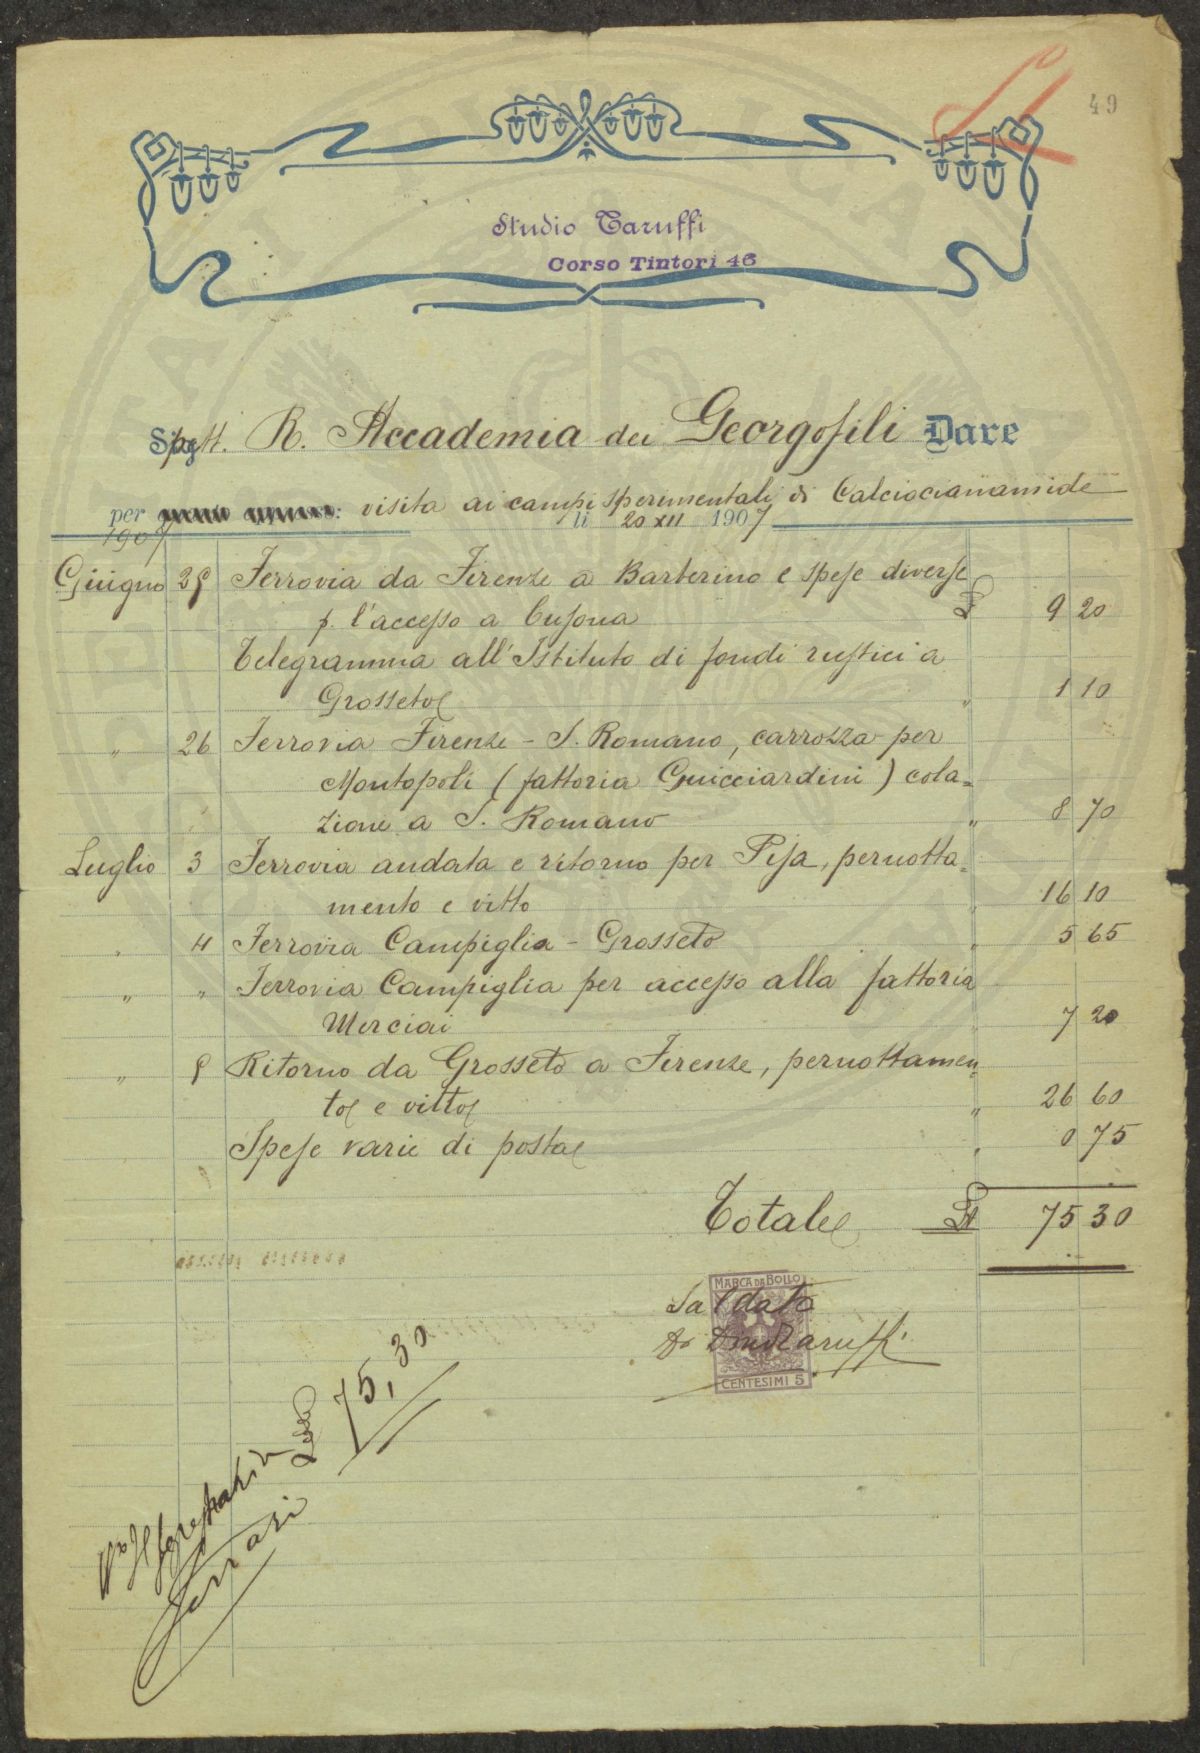 49
Studio Taruffi
Corso Tintori 46
Spett. R. Accademia dei Georgofili Dare
per visita ai campi sperimentali di Calciocianamide
li 20 XII 1907
1907
Giugno 25 Ferrovia da Firenze a Barberino e spese diverse
p. l'accesso a Cusona £ 9 20
Telegramma all'Istituto di fondi rustici a
Grosseto " 1 10
" 26 Ferrovia Firenze - S. Romano, carrozza per
Montopoli (fattoria Guicciardini) cola=
zione a S. Romano " 8 70
Luglio 3 Ferrovia andata e ritorno per Pisa, pernotta=
mento e vitto " 16 10
" 4 Ferrovia Campiglia - Grosseto " 5 65
" " Ferrovia Campiglia per accesso alla fattoria
Merciai " 7 20
" 5 Ritorno da Grosseto a Firenze, pernottamen=
to e vitto " 26 60
Spese varie di posta " 0 75
Totale £ 75 30
MARCA DA BOLLO
Saldato
Taruffi
CENTESIMI 5
Lire 75,30
Vo Il Segretario
Ferrari